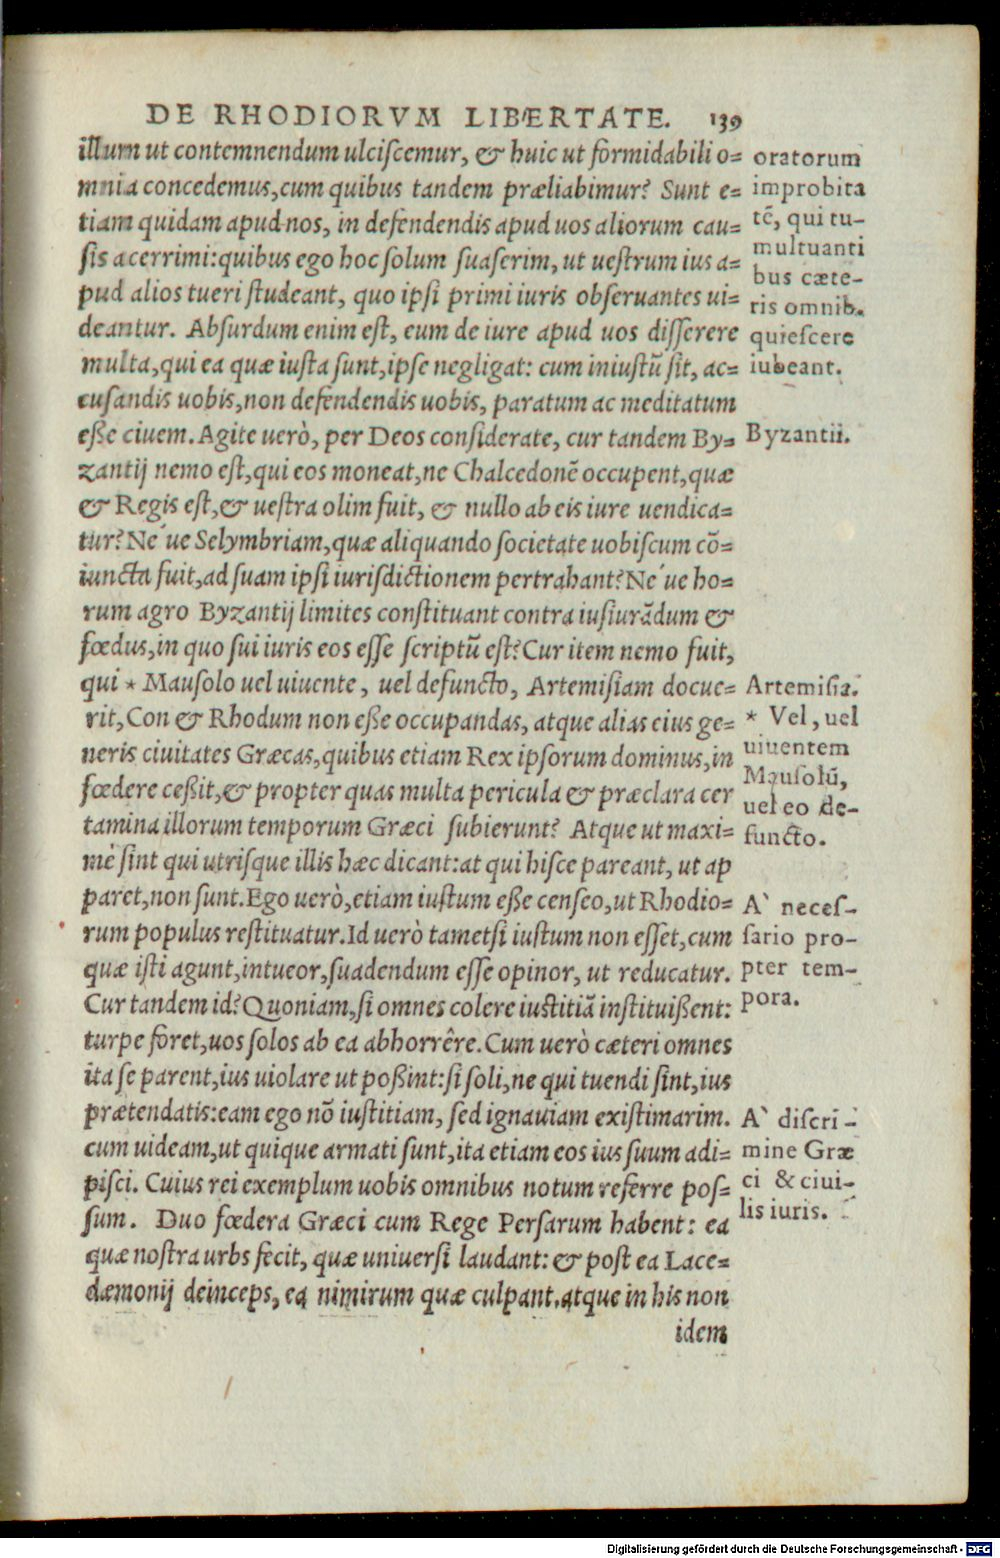 DE RHODIORVM LIBERTATE. 139
illum ut contemnendum ulciſcemur, & huic ut formidabili o=
mnia concedemus, cum quibus tandem præliabimur? Sunt e=
tiam quidam apud nos, in defendendis apud uos aliorum cau=
ſis acerrimi: quibus ego hoc ſolum ſuaſerim, ut ueſtrum ius a=
pud alios tueri ſtudeant, quo ipſi primi iuris obſeruantes ui=
deantur. Abſurdum enim eſt, eum de iure apud uos diſſerere
multa, qui ea quæ iuſta ſunt, ipſe negligat: cum iniuſtū ſit, ac=
cuſandis uobis, non defendendis uobis, paratum ac meditatum
eſſe ciuem. Agite uerò, per Deos conſiderate, cur tandem By=
zantij nemo eſt, qui eos moneat, ne Chalcedonē occupent, quæ
& Regis eſt, & ueſtra olim fuit, & nullo ab eis iure uendica=
tur? Ne´ue Selymbriam, quæ aliquando ſocietate uobiſcum cō=
iuncta fuit, ad ſuam ipſi iurisdictionem pertrahant? Ne´ue ho=
rum agro Byzantij limites conſtituant contra iuſiurādum &
fœdus, in quo ſui iuris eos eſſe ſcriptū eſt? Cur item nemo fuit,
qui * Mauſolo uel uiuente, uel defuncto, Artemiſiam docue=
rit, Con & Rhodum non eſſe occupandas, atque alias eius ge=
neris ciuitates Græcas, quibus etiam Rex ipſorum dominus, in
fœdere ceßit, & propter quas multa pericula & præclara cer
tamina illorum temporum Græci ſubierunt? Atque ut maxi=
mè ſint qui utriſque illis hæc dicant: at qui hiſce pareant, ut ap
paret, non ſunt. Ego uerò, etiam iuſtum eſſe cenſeo, ut Rhodio=
rum populus reſtituatur. Id uerò tametſi iuſtum non eſſet, cum
quæ iſti agunt, intueor, ſuadendum eſſe opinor, ut reducatur.
Cur tandem id? Quoniam, ſi omnes colere iuſtitiā inſtituißent:
turpe foret, uos ſolos ab ea abhorrêre. Cum uerò cæteri omnes
ita ſe parent, ius uiolare ut poßint: ſi ſoli, ne qui tuendi ſint, ius
prætendatis: eam ego nō iuſtitiam, ſed ignauiam exiſtimarim.
cum uideam, ut quique armati ſunt, ita etiam eos ius ſuum adi=
piſci. Cuius rei exemplum uobis omnibus notum referre poſ=
ſum. Duo fœdera Græci cum Rege Perſarum habent: ea
quæ noſtra urbs fecit, quæ uniuerſi laudant: & poſt ea Lace=
dæmonij deinceps, ea nimirum quæ culpant. atque in his non
idem
oratorum
improbita
tē, qui tu-
multuanti
bus cæte-
ris omnib.
quieſcere
iubeant.
Byzantii.
Artemiſia.
* Vel, uel
uiuentem
Mauſolū,
uel eo de-
functo.
A` neceſ-
ſario pro-
pter tem-
pora.
A` diſcri-
mine Græ
ci & ciui-
lis iuris.
Digitalisierung gefördert durch die Deutsche Forschungsgemeinschaft - DFG